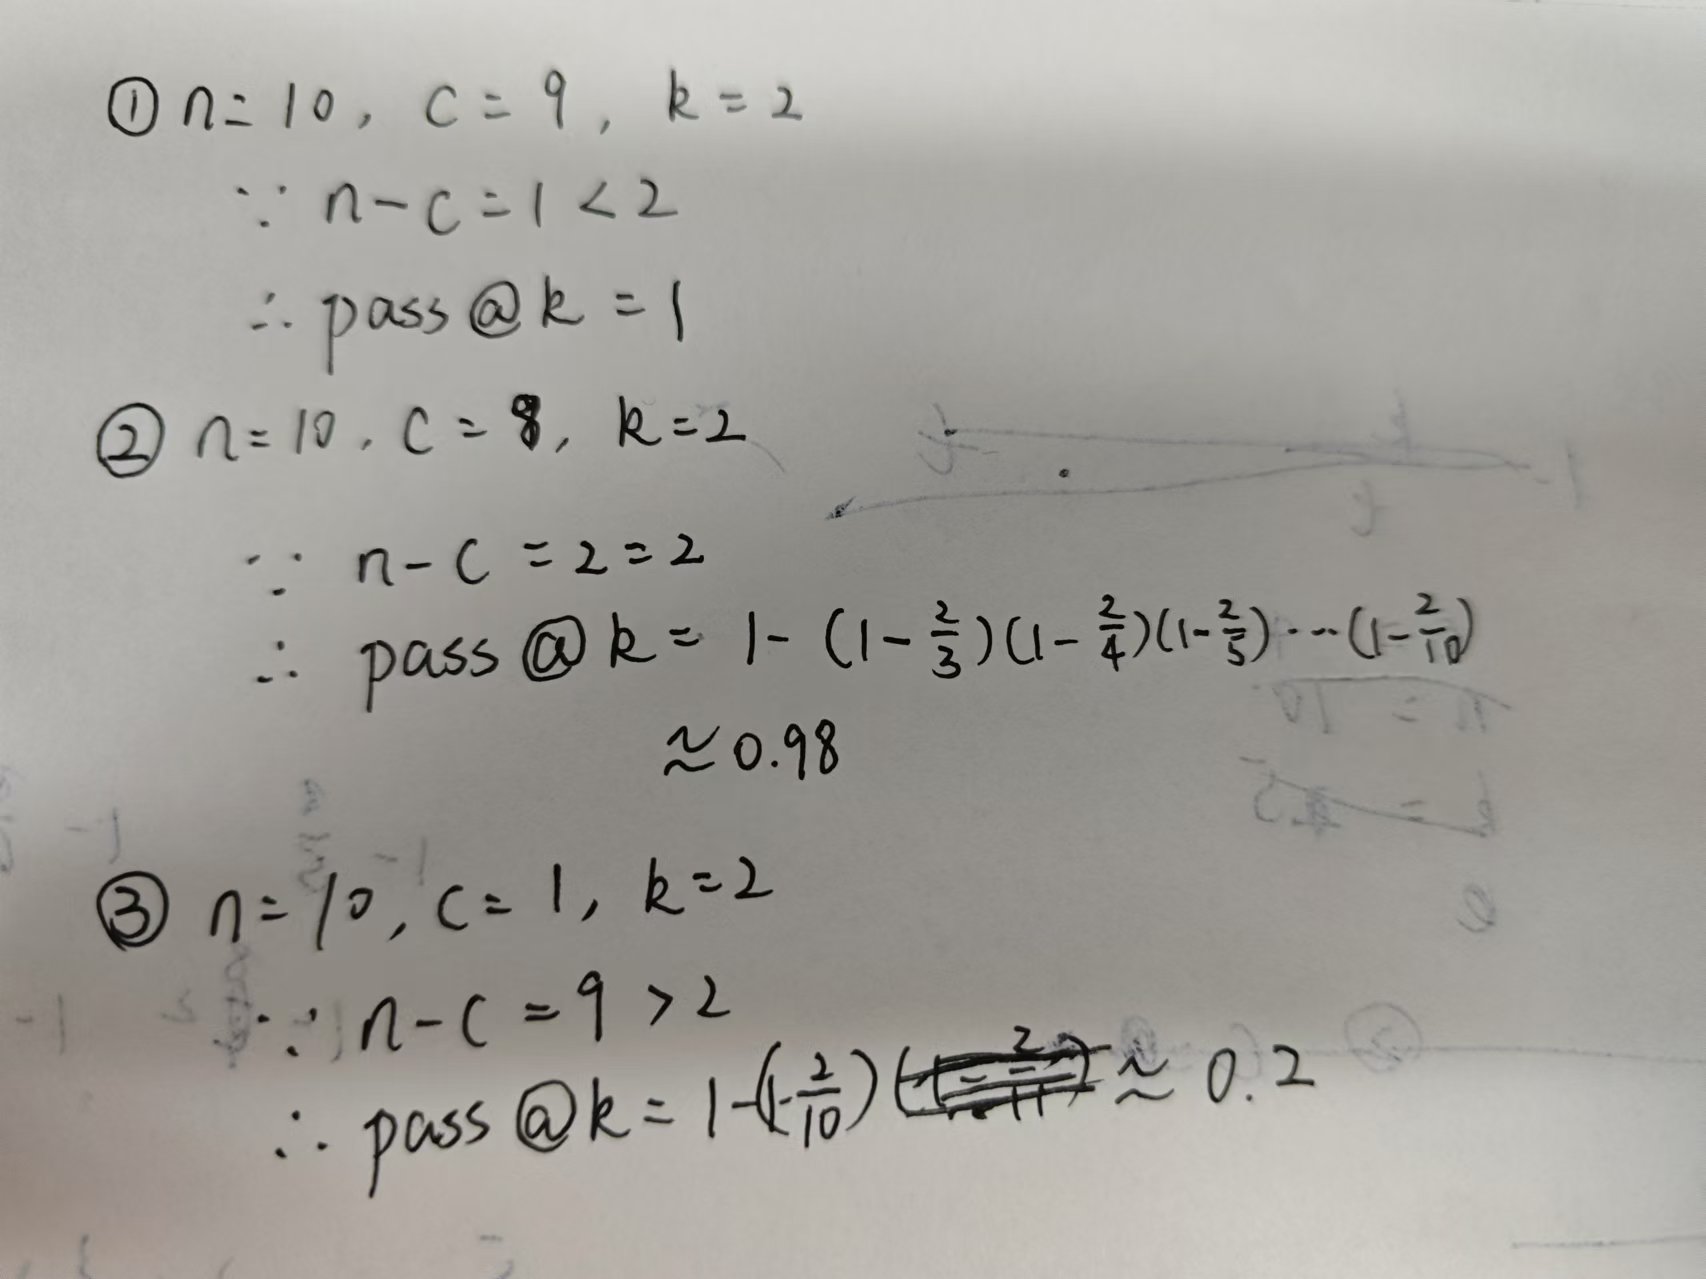 ① n=10, c=9, k=2
∵ n-c=1<2
∴ pass@k=1
② n=10, c=8, k=2
∵ n-c=2=2
∴ pass@k=1-(1-2/3)(1-2/4)(1-2/5)···(1-2/10)
≈0.98
③ n=10, c=1, k=2
∵ n-c=9>2
∴ pass@k=1-(1-2/10) ≈ 0.2